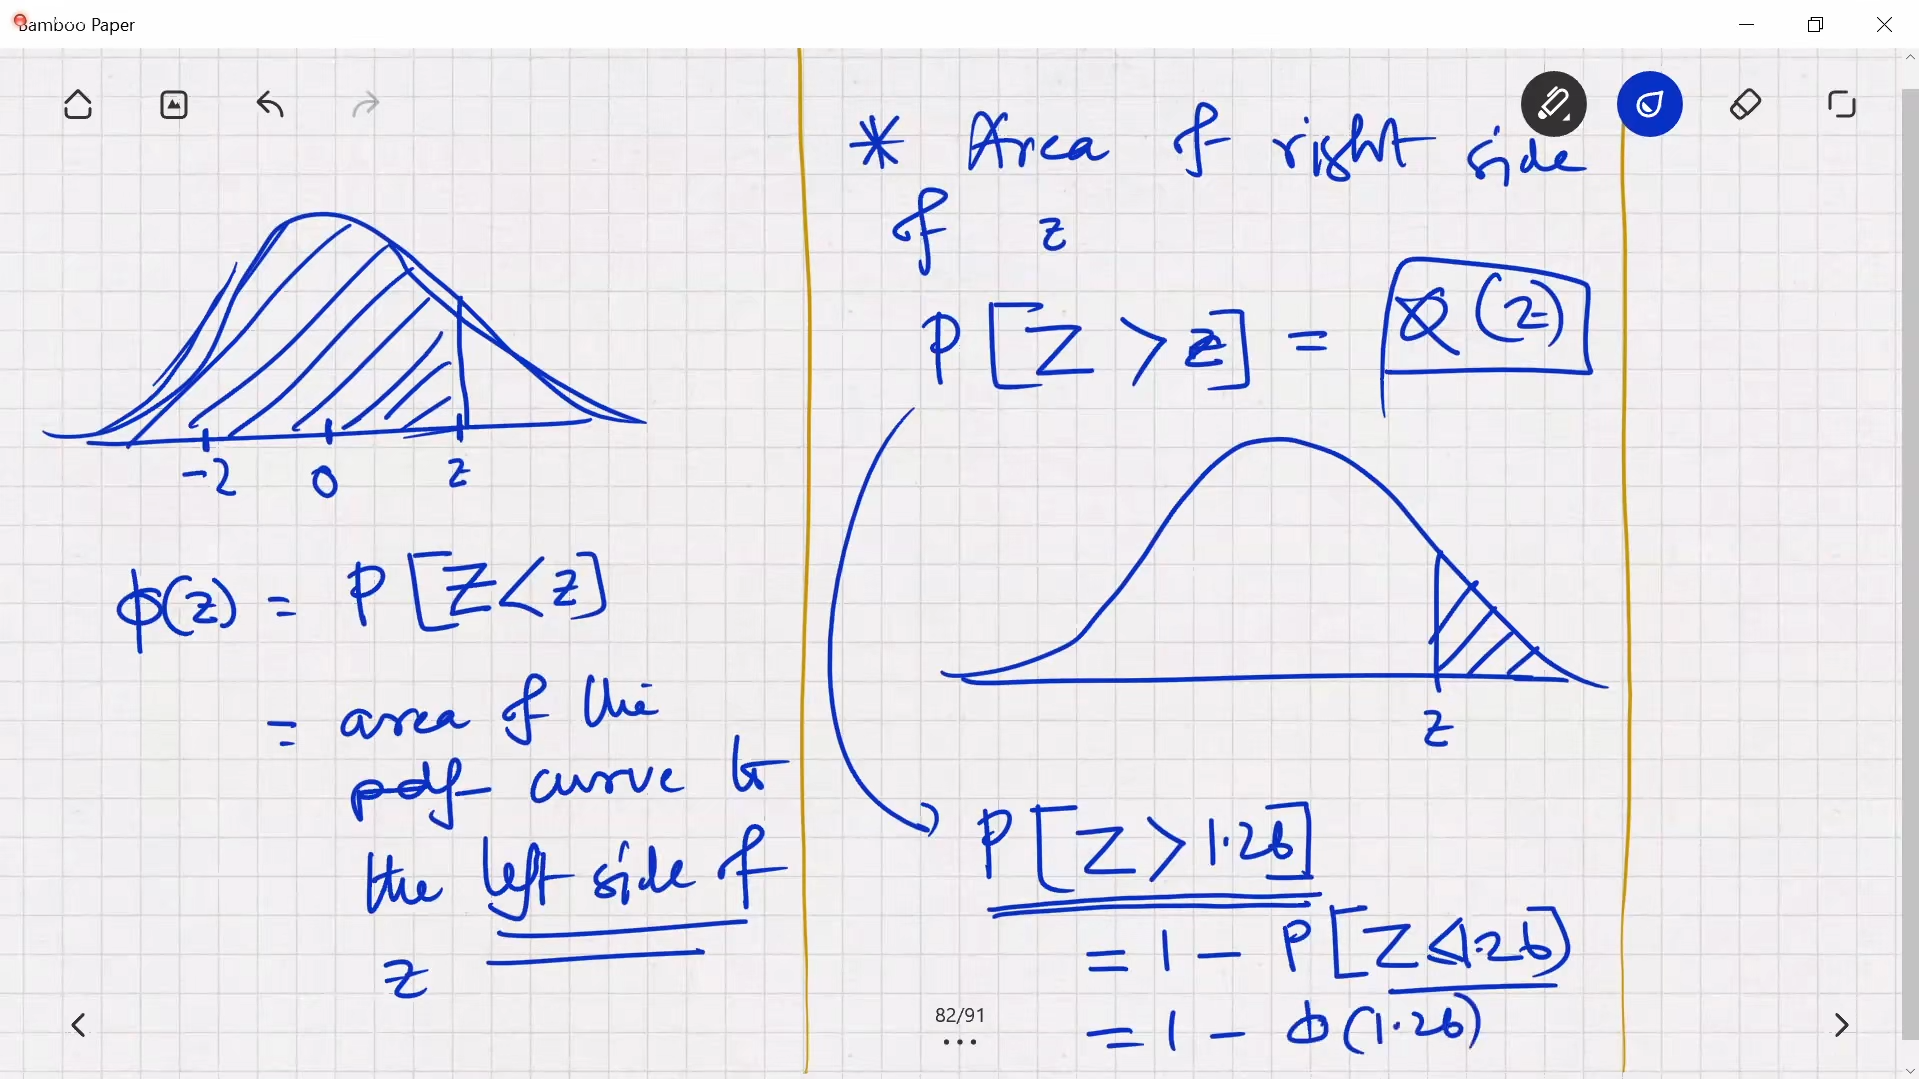 Bamboo Paper
-2 0 z
ϕ(z) = P[Z<z]
= area of the
pdf curve to
the left side of
z
* Area of right side
of z
P[Z > z] = Q(z)
z
P[Z > 1.26]
= 1 - P[Z ≤ 1.26)
= 1 - ϕ(1.26)
82/91